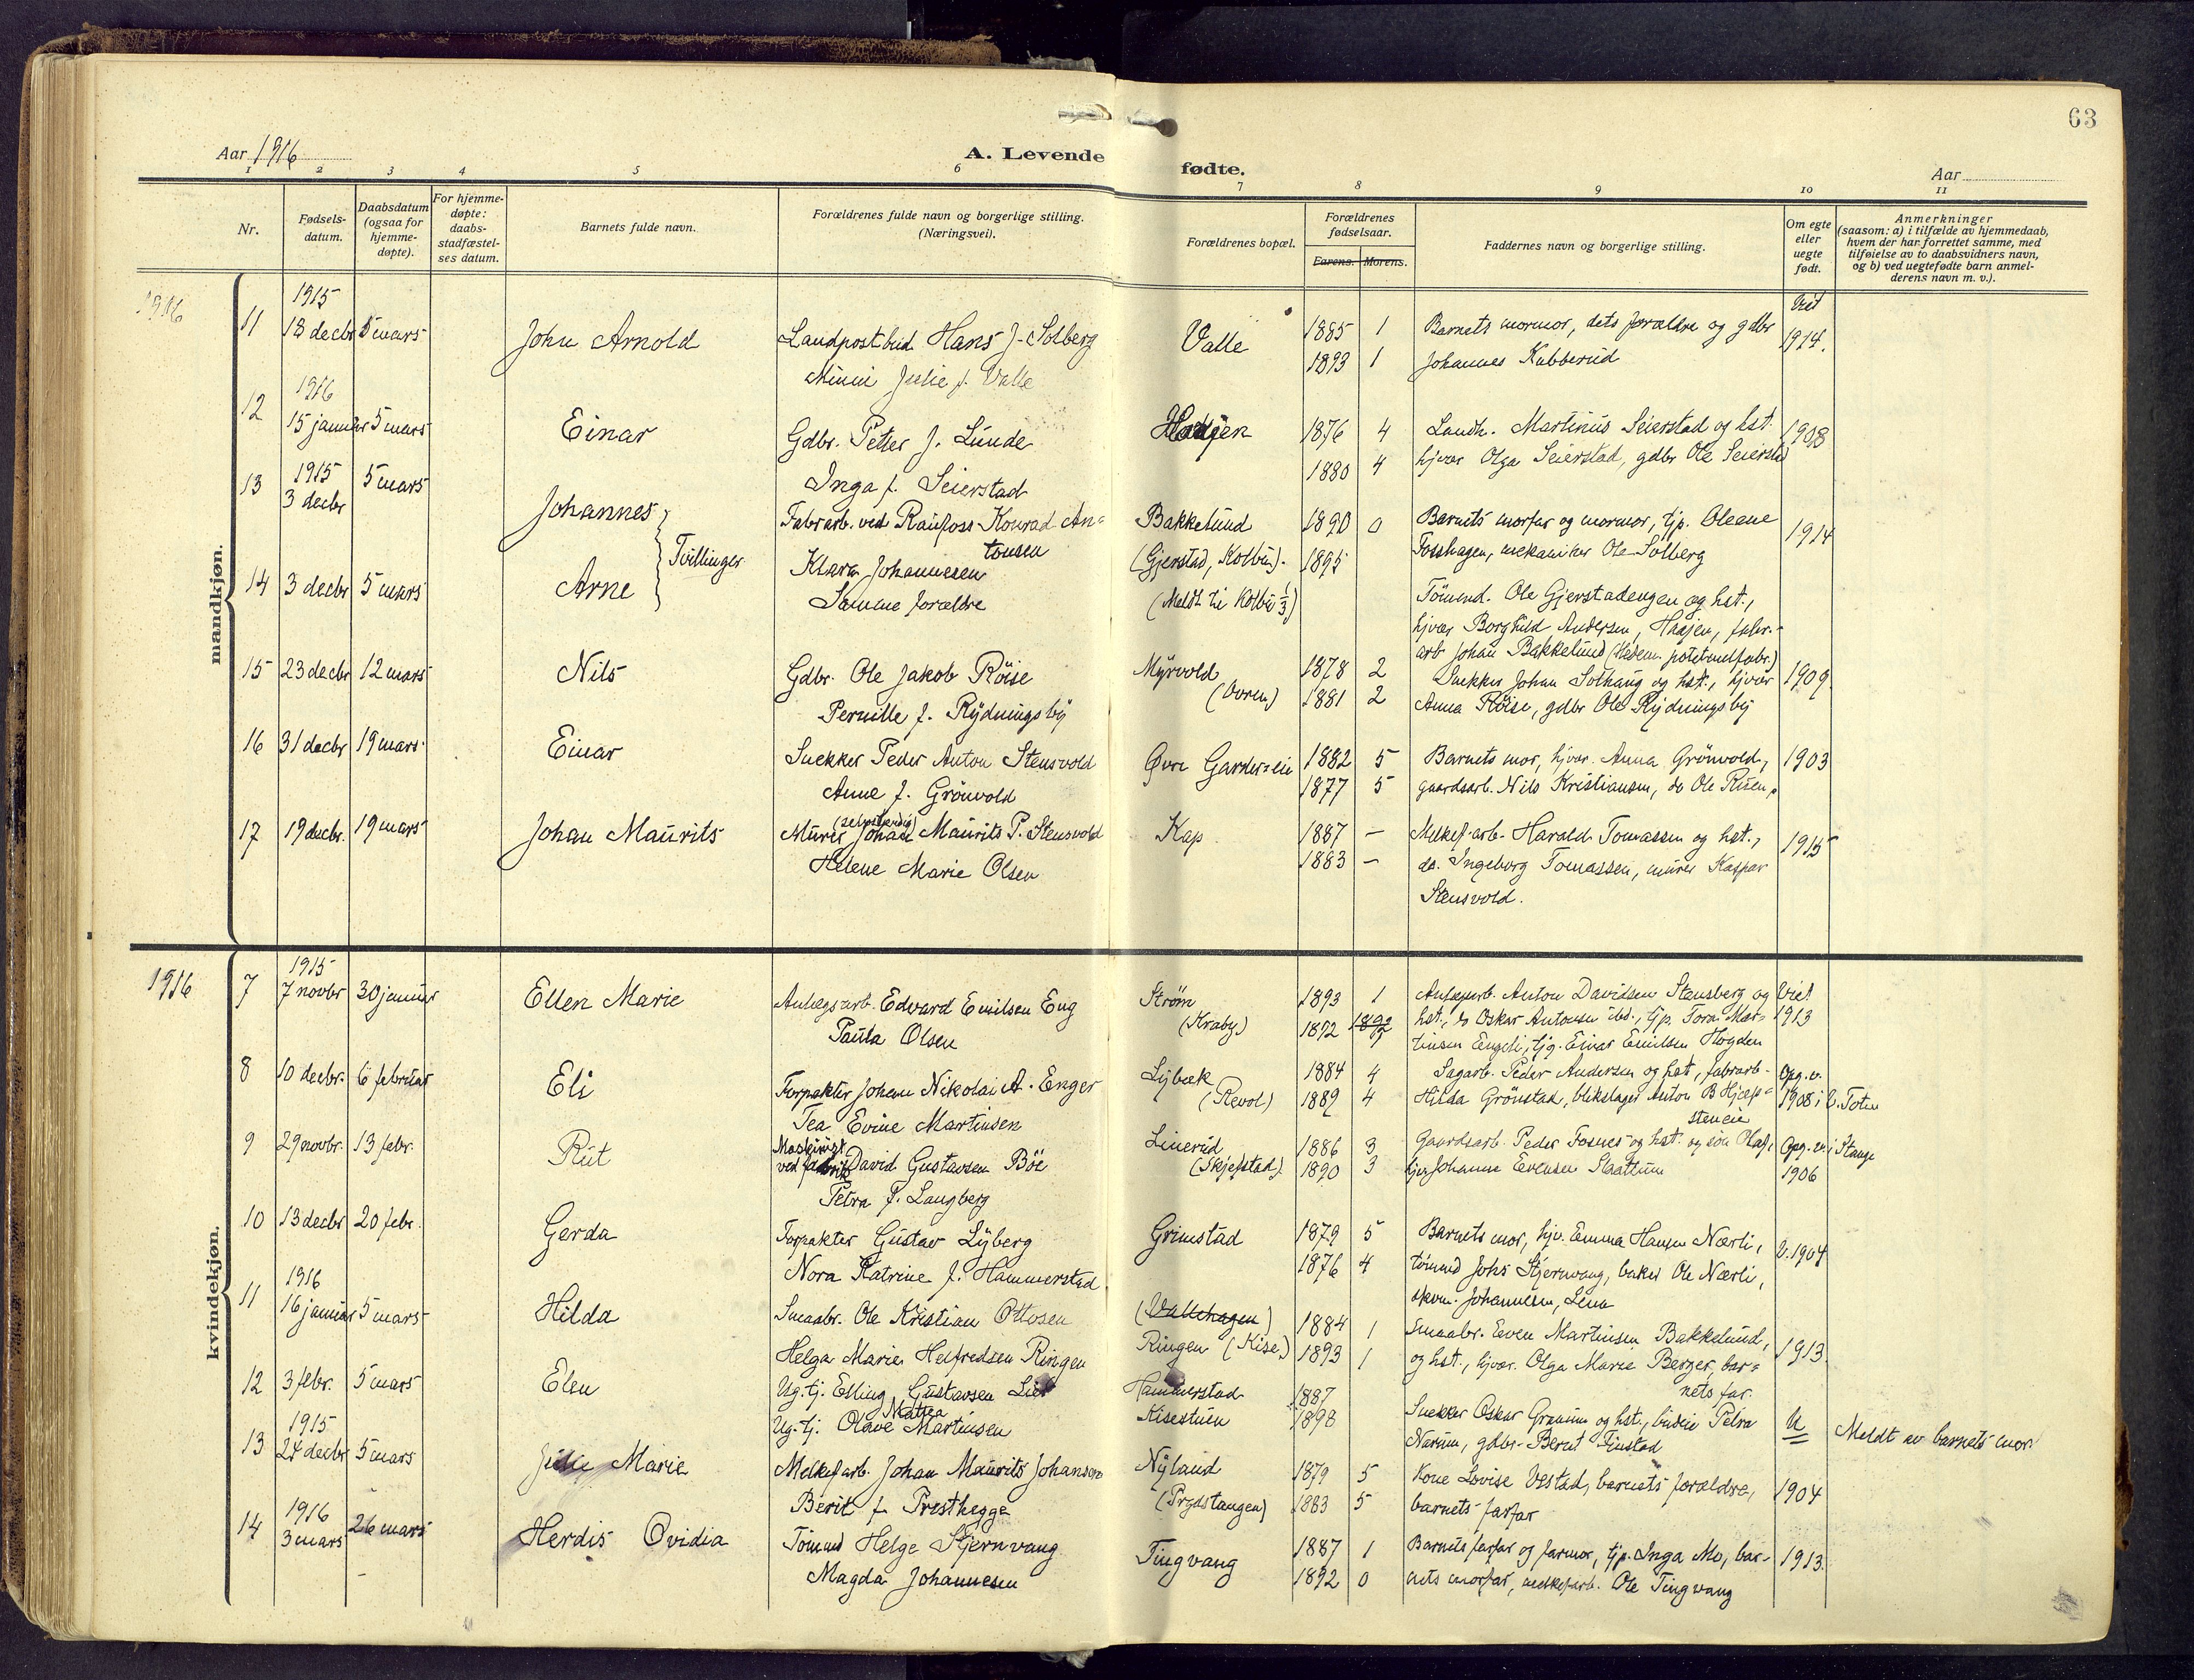 63
Aar 1916
A. Levende fødte.
Aar
1 2 3 4 5 6 7 8 9 10 11
Nr.
Fødsels-
datum.
Daabsdatum
(ogsaa for
hjemme-
døpte).
For hjemme-
døpte:
daabs-
stadfæstel-
ses datum.
Barnets fulde navn.
Forældrenes fulde navn og borgerlige stilling.
(Næringsvei).
Forældrenes bopæl.
Forældrenes
fødselsaar.
Farens. Morens.
Faddernes navn og borgerlige stilling.
Om egte
eller
uegte
født.
Anmerkninger
(saasom: a) i tilfælde av hjemmedaab,
hvem der har forrettet samme, med
tilføielse av to daabsvidners navn,
og b) ved uegtefødte barn anmel-
derens navn m. v.).
1916
mandkjøn.
1915
11 18 decbr 5 mars John Arnold Landpostbud Hans J. Solberg Valle 1885 1 Barnets mormor, dets forældre og gdbr Viet
Mimi Julie f. Valle 1893 1 Johannes Kubberud 1914.
1916
12 15 januar 5 mars Einar Gdbr. Petter J. Lunde 1876 4 Landh. Martinus Seierstad og hst. 1908
Inga f. Seierstad 1880 4 hjvær Olga Seierstad, gdbr Ole Seierstad
1915
13 3 decbr 5 mars Johannes Fabrarb. ved Raufoss Konrad An= Bakkelund 1890 0 Barnets morfar og mormor, tjp. Oleane 1914
tonsen
Tvillinger
Klara Johannesen (Gjerstad, Kolbu). 1895 Fosshagen, mekaniker Ole Solberg
14 3 decbr 5 mars Arne Samme forældre (Meldt til Kolbu 1/3) Tømmd. Ole Gjerstadengen og hst.,
hjvær Borghild Andersen, Haajen, fabr.-
arb Johan Bakkelund (Hedem. potetmelfabr.)
15 23 decbr 12 mars Nils Gdbr. Ole Jakob Röise Myrvold 1878 2 Snekker Johan Solhaug og hst., hjvær 1909
Pernille f. Rydningsby (Ovren) 1881 2 Anna Röise, gdbr Ole Rydningsby
16 31 decbr 19 mars Einar Snekker Peder Anton Stensvold Øvre Garder=eie 1882 5 Barnets mor, hjvær. Anna Grönvold, 1903
Anne f. Grönvold 1877 5 gaardsarb. Nils Kristiansen, do Ole Risen,
17 19 decbr. 19 mars Johan Maurits Murer (selvstendig) Johan Maurits P. Stensvold Kap 1887 – Melkef-arb. Harald Tomassen og hst., 1915
Helene Marie Olsen 1883 – do. Ingeborg Tomassen, murer Kaspar
Stensvold.
1916
kvindekjøn.
1915
7 7 novbr 30 januar Ellen Marie Anlægsarb. Edvard Emilsen Eng Strøm 1893 1 Anlægsarb. Anton Davidsen Stensberg og Viet
Paula Olsen (Kraby) 1872 hst., do Oskar Antonsen ibd., tjp. Tora Mar= 1913
tinsen Engeli, tjg. Einar Emilsen Hogden
8 10 decbr. 6 februar Eli Forpakter Johan Nikolai A. Enger Lybæk 1884 4 Sagarb. Peder Andersen og hst, fabrarb- Opg. v.
Tea Evine Martinsen (Revol) 1889 4 Hilda Grönstad, blikslager Anton B Hjelp= 1908 i V. Toten
steneie
9 29 novbr. 13 febr. Rut Maskinist ved fabrik David Gustavsen Böe Linerud 1886 3 Gaardsarb. Peder Fosnes og hst. og søn Olaf, Opg. v. i Stange
Petra P. Langberg (Skjefstad) 1890 3 tjp Johanne Evensen Slaattum 1906
10 13 decbr 20 febr. Gerda Forpakter Gustav Lyberg Grimstad 1879 5 Barnets mor, hjv. Emma Hansen Nærli, V. 1904
Nora Katrine f. Hammerstad 1876 4 tømmd Johs Stjernvang, baker Ole Nærli,
skom. Johannesen, Lena
1916
11 16 januar 5 mars Hilda Smaabr. Ole Kristian Ottosen (Vallehagen) 1884 1 Smaabr. Even Martinsen Bakkelund, 1913.
Helga Marie Helfredsen Ringen Ringen (Kise) 1893 1 og hst., hjvær. Olga Marie Berger, bar=
nets far.
12 3 febr. 5 mars Elen Ug. tj. Elling Gustavsen Hammerstad 1887 Snekker Oskar Granum og hst., budeie Petra U Meldt av barnets mor
Ug. tj. Olave Matea Martinsen Kisestuen 1898 Narum, gdbr. Bernt Finstad
1915
13 24 decbr 5 mars Julie Marie Melkef arb. Johan Maurits Johansen Nyland 1879 5 Kone Lovise Vestad, barnets forældre, 1904
Berit f. Presthegge (Prydstangen) 1883 5 barnets farfar
1916
14 3 mars 26 mars Herdis Ovidia Tömmd Helge Stjernvang Tingvang 1887 1 Barnets farfar og farmor, tjp. Inga Mo, bar- 1913.
Magda Johannesen 1892 0 nets morfar, melkefarb. Ole Tingvang